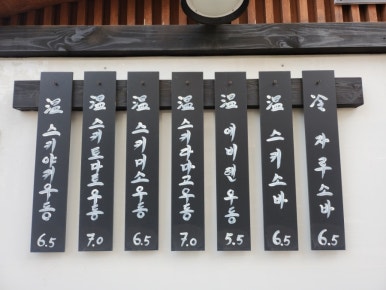 温 스키야키우동 6.5
温 스키토마토우동 7.0
温 스키미소우동 6.5
温 스키다마고우동 7.0
温 에비텐우동 5.5
温 스키소바 6.5
冷 자루소바 6.5